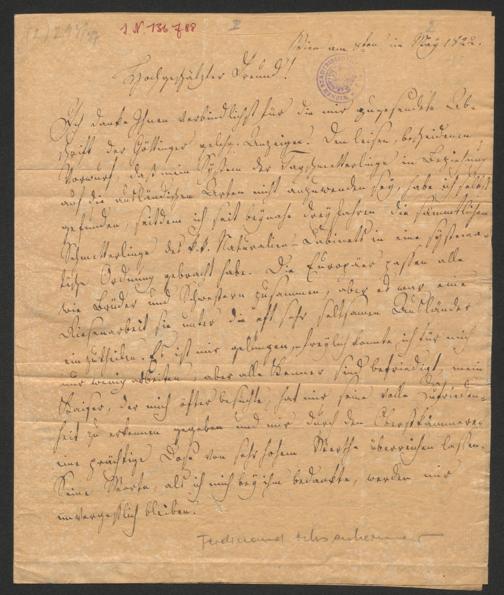 I. N. 136788
Wien am 9ten im May 1822.
Hochgeschätzter Freund!
Ich danke Ihnen verbindlichst für die mir zugesendete Ab-
schrift der Göttinger gelehr. Anzeigen. Den leisen, bescheidenen
Vorwurf, daß mein System der Tagschmetterlinge in Beziehung
auf die ausländischen Arten nicht anzuwenden sey, habe ich selbst
gefunden, seitdem ich seit beynahe drey Jahren die sämmtlichen
Schmetterlinge des k.k. Naturalien-Cabinets in eine systema-
tische Ordnung gebracht habe. Die Europäer passen alle
wie Brüder und Schwestern zusammen, aber es war eine
Riesenarbeit sie unter die oft sehr seltsamen Ausländer
einzutheilen. Es ist mir gelungen, freylich konnte ich für mich
nur wenig arbeiten, aber alle Kenner sind befriedigt, mein
Kaiser, der mich öfter besuchte, hat mir seine volle Zufrieden-
heit zu erkennen gegeben und mir durch den Oberstkämmerer
eine prächtige Dose von sehr hohem Werthe überreichen lassen.
Seine Worte, als ich mich bey ihm bedankte, werden mir
unvergeßlich bleiben.
Ferdinand Ochsenheimer